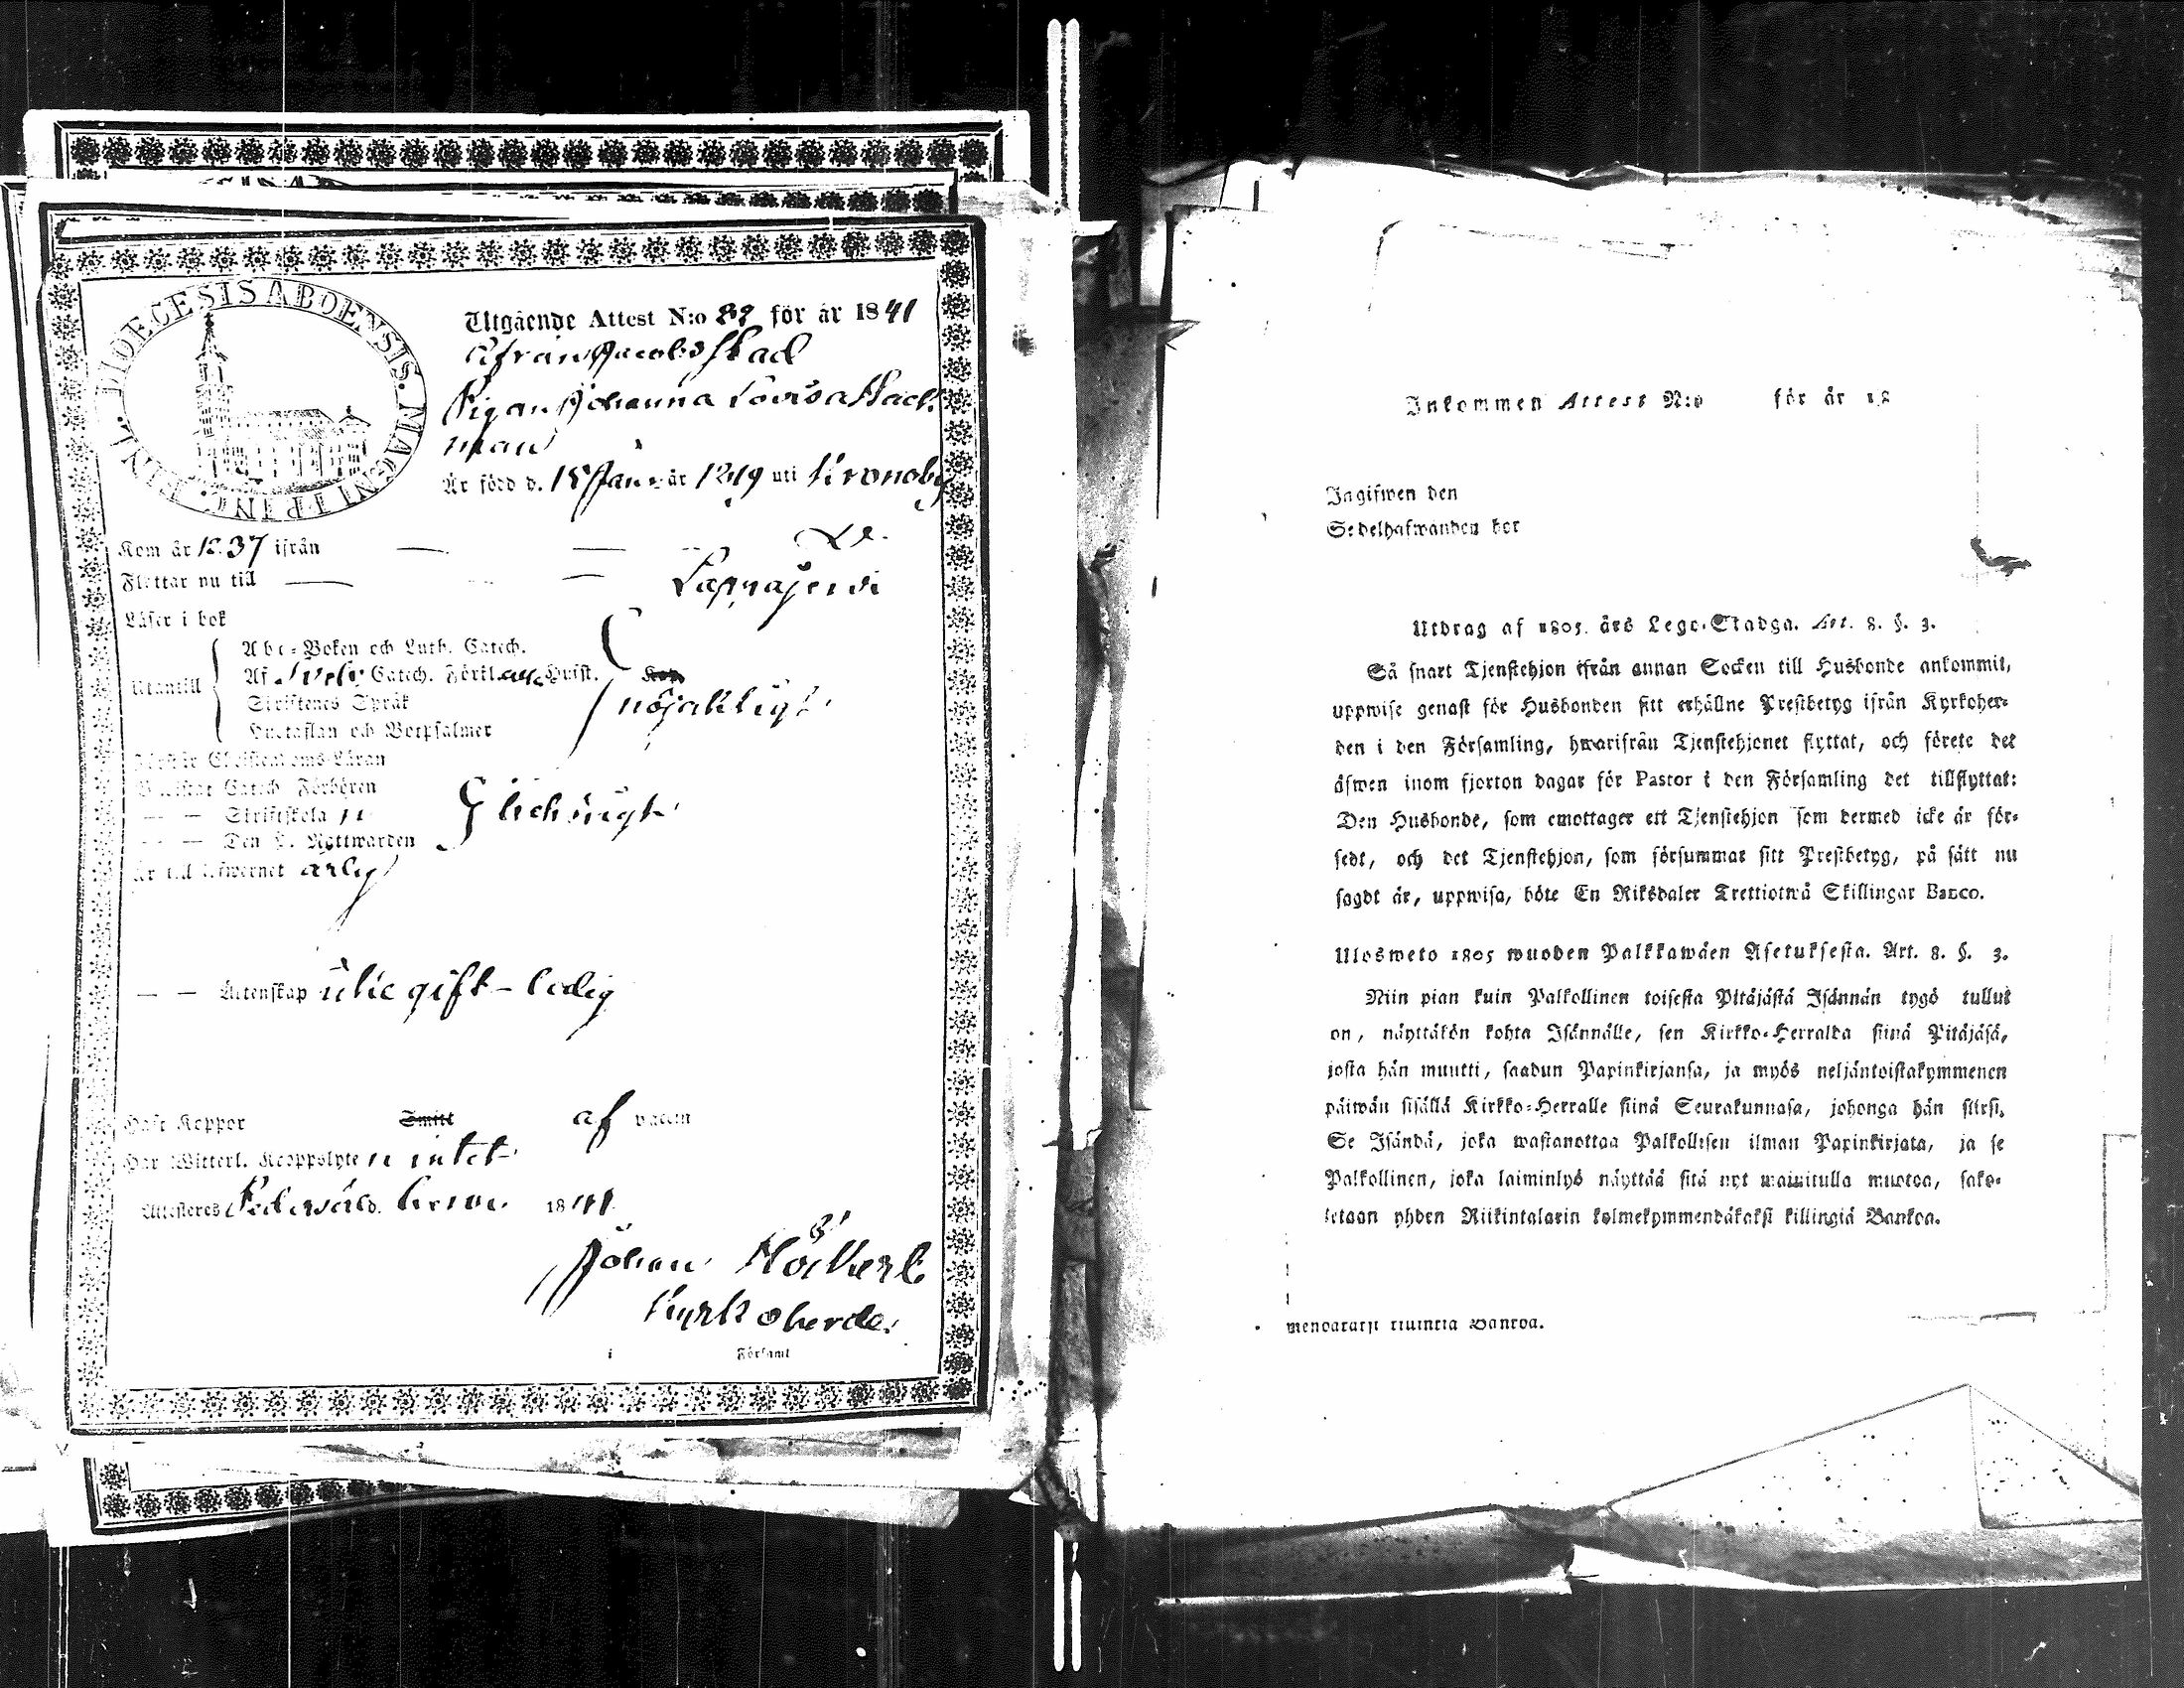 DIOECESIS ABOENSIS. MAGNI PRINC. FINL.
Utgående Attest N:o 82 för år 1841
ifrån Jacobstad
Pigan Johanna Lovisa Back
man
Är född d. 18 Janu. år 1819 uti Kronoby
Kom år 1837 ifrån — —
Flyttar nu till — —
Lappajervi
Läser i bok
Utantill
Abc-Boken och Luth. Catech.
Af Sveb. Catech. Förkl. Quist.
Skriftenes Språk
Hustaflan och Botpsalmer
nöjaktigt
Förstår Christendoms-Läran
Bewistat Catech. Förhören
— — Skriftskola
— — Den H. Nattwarden
Är till lefwernet ärlig
— — Äktenskap icke gift - ledig
Haft Koppor
Smitt
af vaccin
Har Witterl. Kroppslyten intet
Attesteras Pedersöre 1841
Johan
Kyrkoherde.
i Församl.
Inkommen Attest N:o för år 18
Ingifwen den
Sedelhafwanden bor
Utdrag af 1805. års Lego-Stadga. Art. 8. §. 3.
Så snart Tjenstehjon ifrån annan Socken till Husbonde ankommit,
uppwise genast för Husbonden sitt erhållne Prestbetyg ifrån Kyrkoher-
den i den Församling, hwarifrån Tjenstehjonet flyttat, och förete det
äfwen inom fjorton dagar för Pastor i den Församling det tillflyttat:
Den Husbonde, som emottager ett Tjenstehjon som dermed icke är för-
sedt, och det Tjenstehjon, som försummar sitt Prestbetyg, på sätt nu
sagdt är, uppwisa, böte En Riksdaler Trettiotwå Skillingar Banco.
Ulosweto 1805 wuoden Palkkawäen Asetuksesta. Art. 8. §. 3.
Niin pian kuin Palkollinen toisesta Pitäjästä Isännän tygö tullut
on, näyttäkön kohta Isännälle, sen Kirkko-Herralda siinä Pitäjäsä,
josta hän muutti, saadun Papinkirjansa, ja myös neljäntoistakymmenen
päiwän sisällä Kirkko-Herralle siinä Seurakunnasa, johonga hän siirsi.
Se Isändä, joka wastanottaa Palkollisen ilman Papinkirjata, ja se
Palkollinen, joka laiminlyö näyttää sitä nyt mainitulla muotoa, sako-
tetaan yhden Riikintalarin kolmekymmendäkaksi killingiä Bankoa.
mendäkaksi killingiä Bankoa.